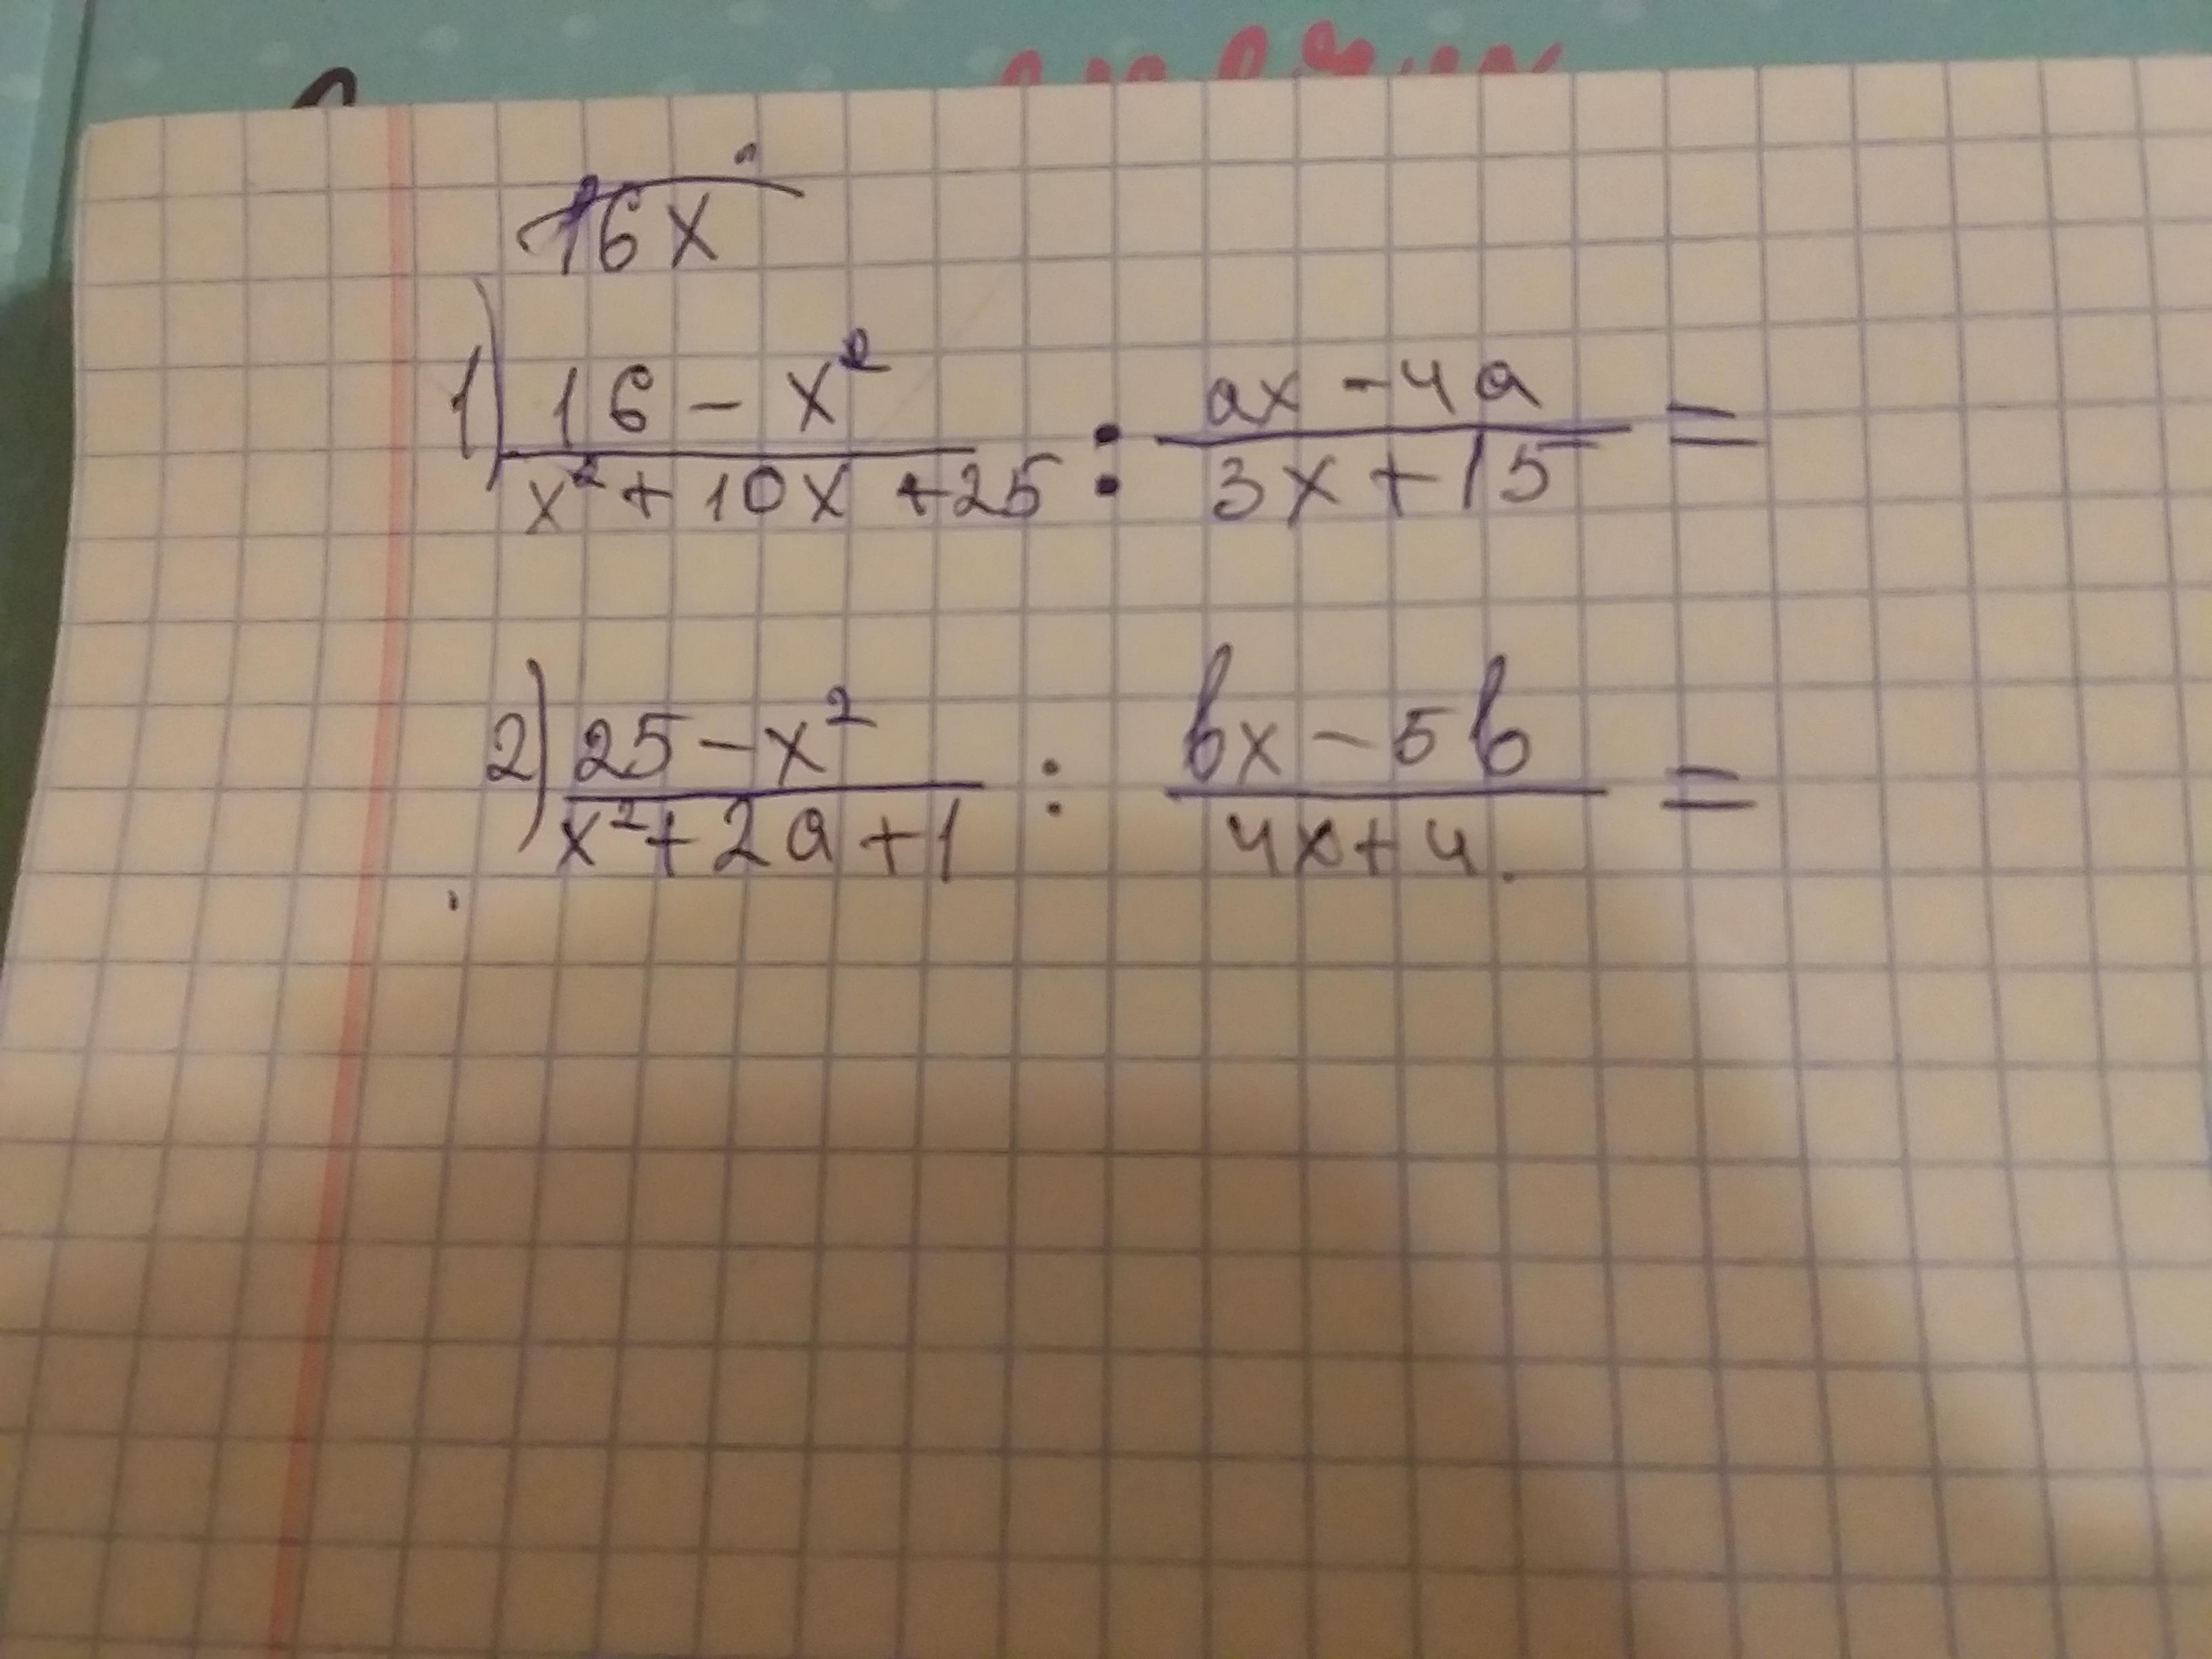 16x
1) 16 - x² / x² + 10x + 25 : ax - 4a / 3x + 15 =
2) 25 - x² / x² + 2a + 1 : bx - 5b / 4x + 4. =